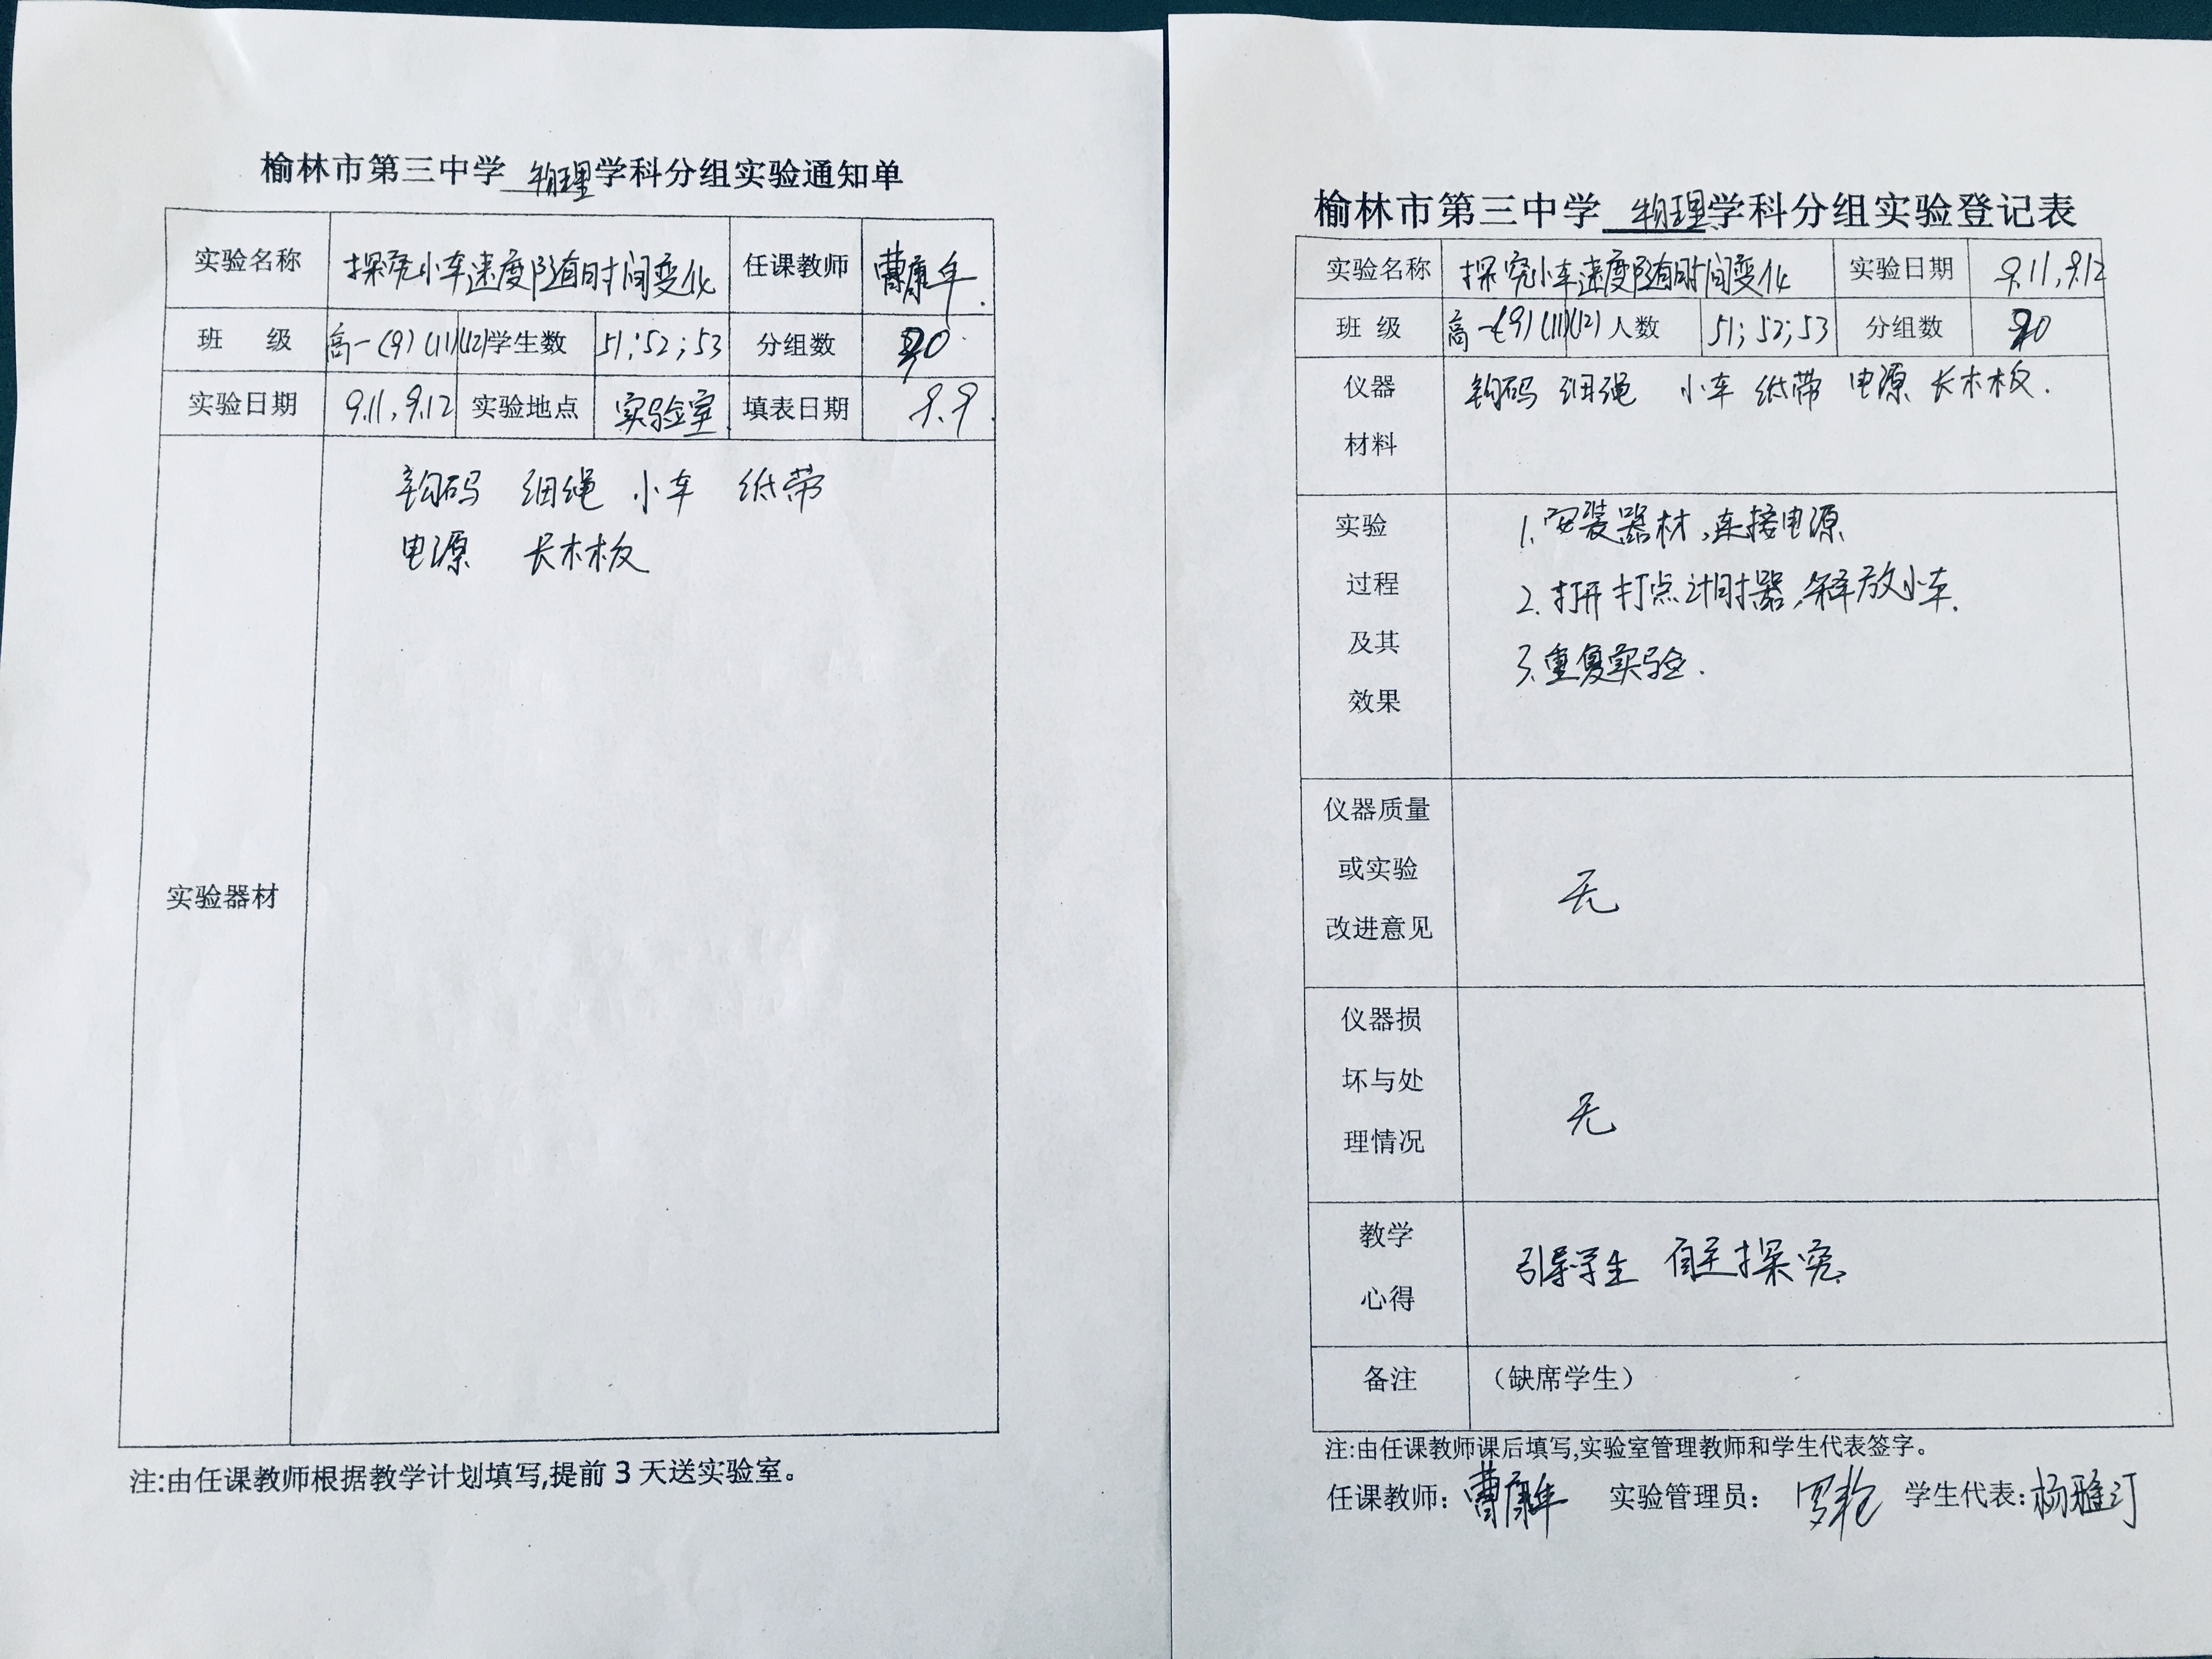 榆林市第三中学 物理 学科分组实验通知单
实验名称 探究小车速度随时间变化 任课教师 曹康年
班 级 高一(9)(11)(12) 学生数 51;52;53 分组数
实验日期 9.11,9.12 实验地点 实验室 填表日期 9.9
实验器材
钩码 细绳 小车 纸带
电源 长木板
注:由任课教师根据教学计划填写,提前3天送实验室。
榆林市第三中学 物理 学科分组实验登记表
实验名称 探究小车速度随时间变化 实验日期 9.11,9.12
班 级 高一(9)(11)(12) 人数 51;52;53 分组数
仪器 钩码 细绳 小车 纸带 电源 长木板.
材料
实验 1.安装器材,连接电源
过程 2.打开打点计时器,释放小车.
及其 3.重复实验.
效果
仪器质量
或实验 无
改进意见
仪器损
坏与处 无
理情况
教学 引导学生 自主探究
心得
备注 (缺席学生)
注:由任课教师课后填写,实验室管理教师和学生代表签字。
任课教师: 曹康年 实验管理员: 罗 学生代表: 杨雅汀